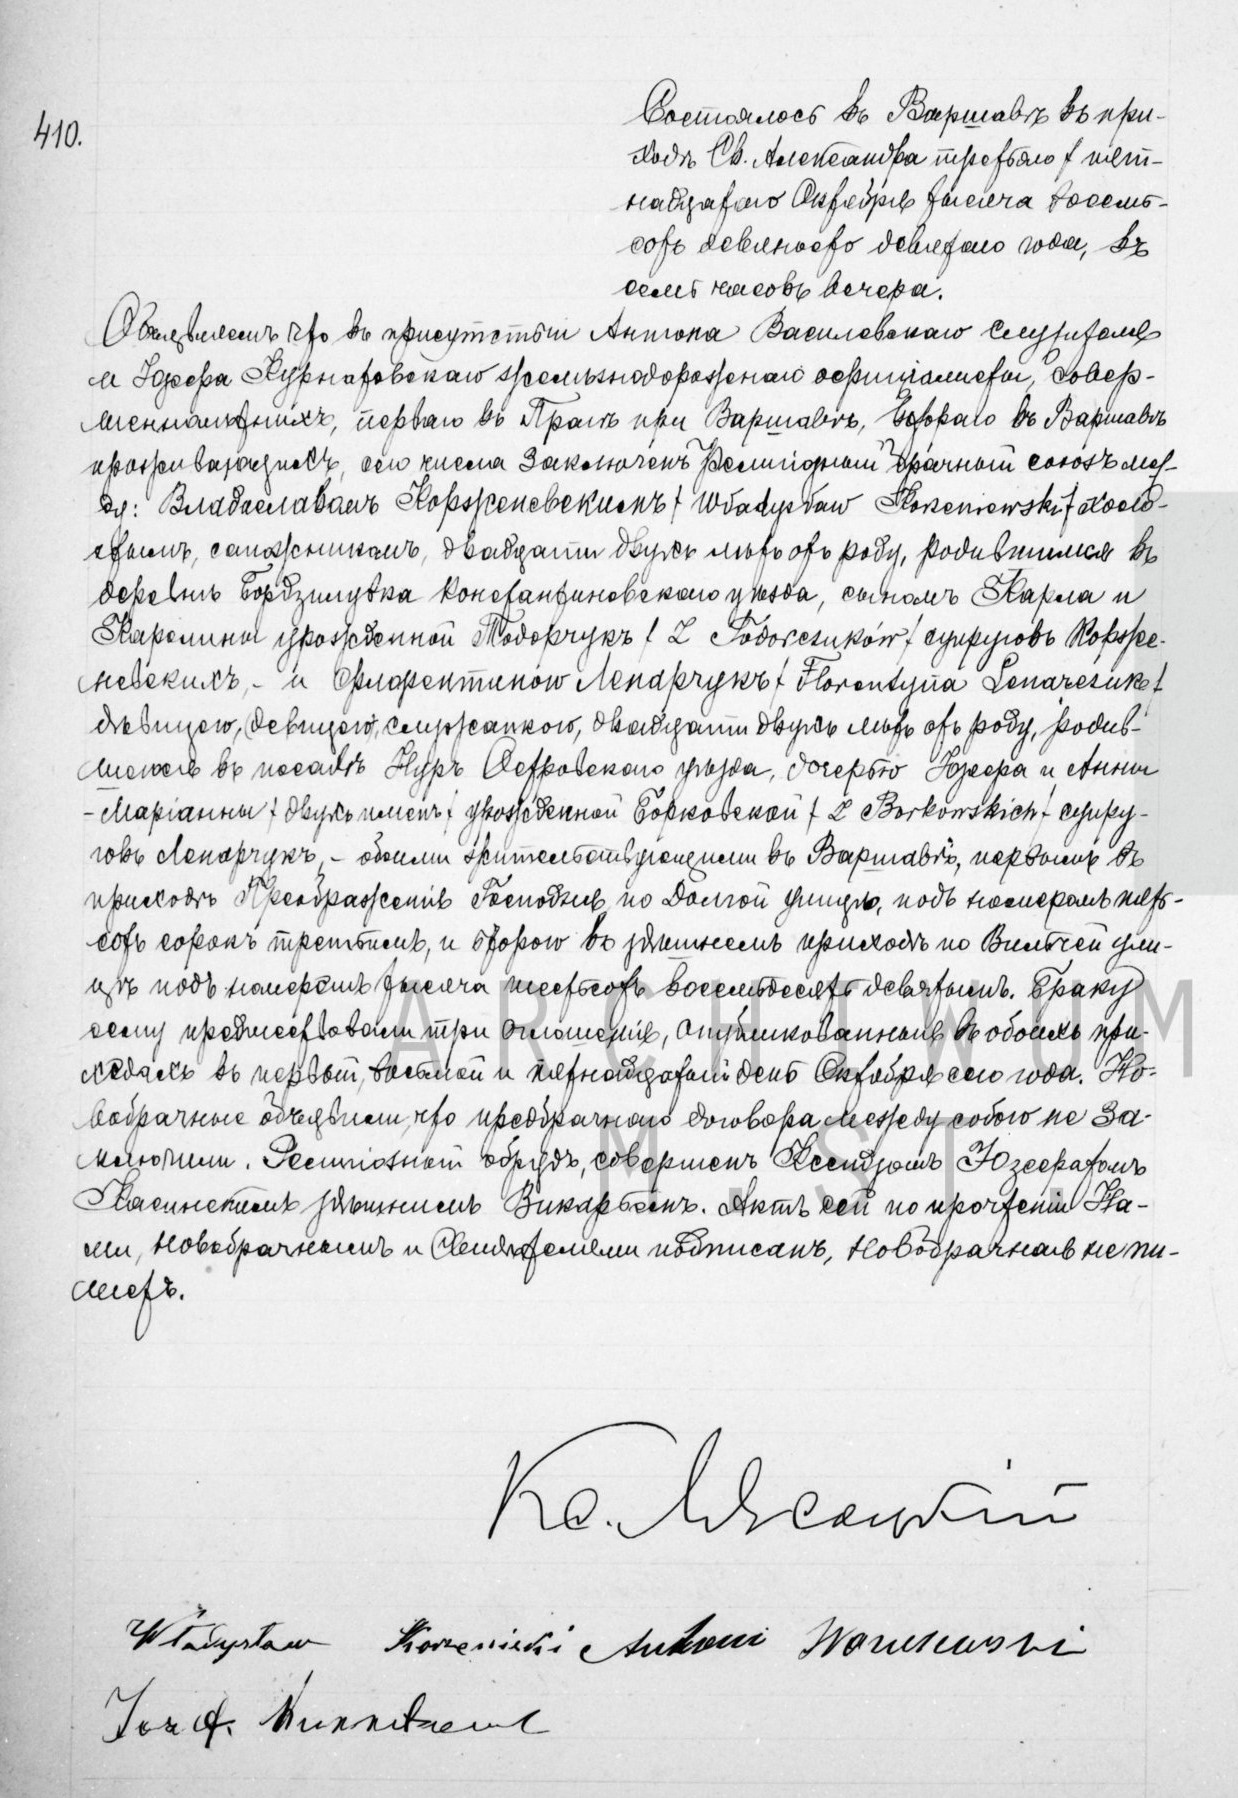 410.
Состоялось въ Варшавѣ въ при-
ходѣ Св. Александра третьяго / пят-
надцатаго Октября тысяча восемь-
сотъ девяносто девятаго года, въ
семь часовъ вечера.
Объявляемъ что въ присутствіи Антона Василевскаго служителя
и Юзефа Курнатовскаго желѣзнодорожнаго оффиціалиста, совер-
шеннолѣтнихъ, перваго въ Прагѣ при Варшавѣ, втораго въ Варшавѣ
проживающихъ, сего числа заключенъ религіозный брачный союзъ меж-
ду: Владиславомъ Корженевскимъ / Władysław Korzeniowski / холо-
стымъ, сапожникомъ, двадцати двухъ лѣтъ отъ роду, родившимся въ
деревнѣ Бордзилувка Константиновскаго уѣзда, сыномъ Карла и
Каролины урожденной Тодорчукъ / z Todorczuków / супруговъ Корже-
невскихъ, - и Флорентиною Ленарчукъ / Florentyna Lenarczuk /
дѣвицею, девицею, служанкою, двадцати двухъ лѣтъ отъ роду, родив-
шеюся въ посадѣ Нуръ Островскаго уѣзда, дочерью Юзефа и Анны
- Маріанны / двухъ именъ / урожденной Борковской / z Borkowskich / супру-
говъ Ленарчукъ, - обоими жительствующими въ Варшавѣ, первымъ въ
приходѣ Преображенія Господня по Долгой улицѣ, подъ номеромъ пять-
сотъ сорокъ третьимъ, и второю въ здѣшнемъ приходѣ по Вильчей ули-
цѣ подъ номеромъ тысяча шестьсотъ восемьдесятъ девятымъ. Браку
сему предшествовали три оглашенія, опубликованныя въ обоихъ при-
ходахъ въ первый, восьмой и пятнадцатый день Октября сего года. Но-
вобрачные объявили, что предбрачнаго договора между собою не за-
ключили. Религіозный обрядъ, совершенъ Ксендзомъ Юзефатомъ
Касинскимъ здѣшнимъ Викаріемъ. Актъ сей по прочтеніи На-
ми, новобрачнымъ и Свидѣтелями подписанъ, новобрачная не пи-
шетъ.
Кс.
Władysław Korzeniewski Antoni
Józef